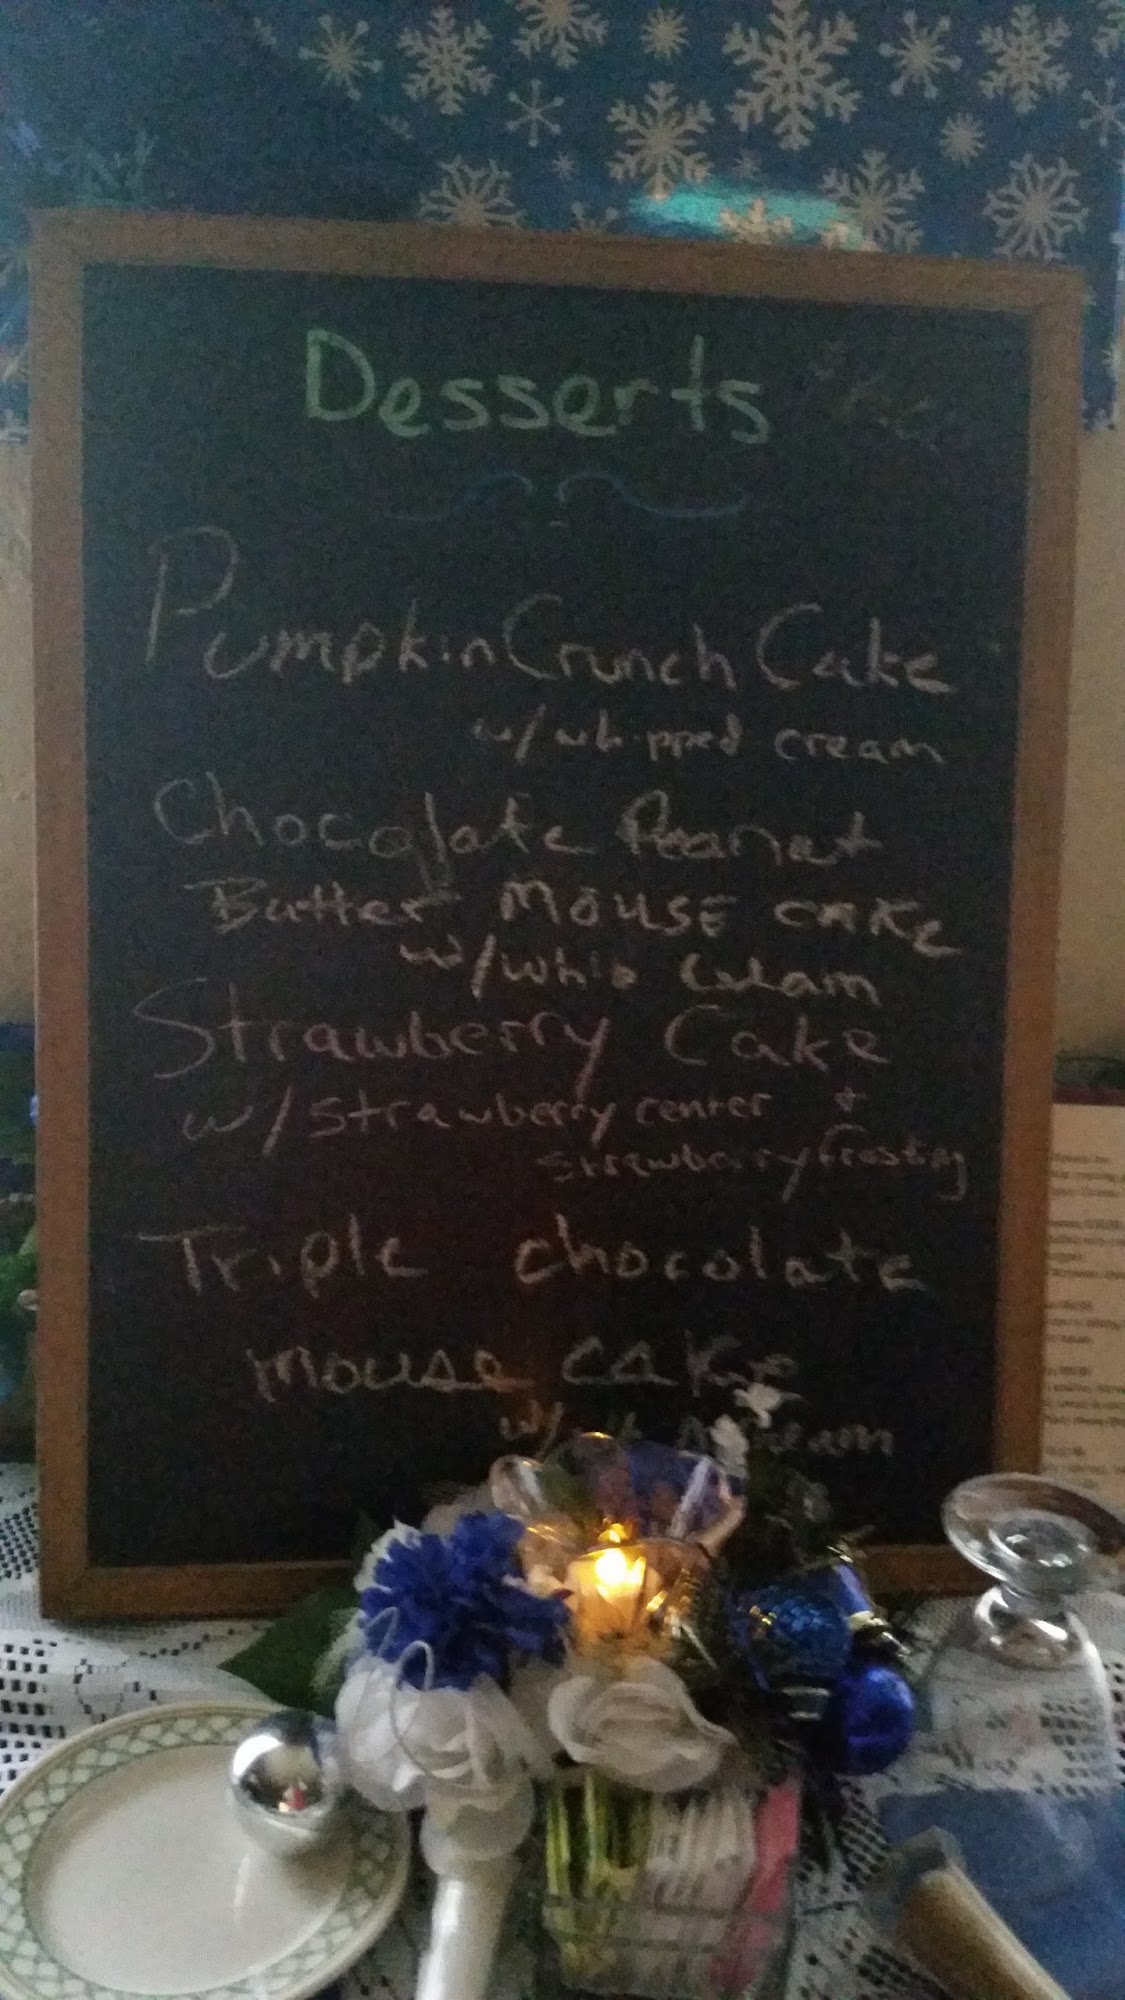 Desserts
Pumpkin Crunch Cake
w/whipped cream
Chocolate Peanut
Butter MOUSE CAKE
w/whip
Strawberry Cake
w/strawberry center +
strawberry frosting
Triple chocolate
mouse cake
w/